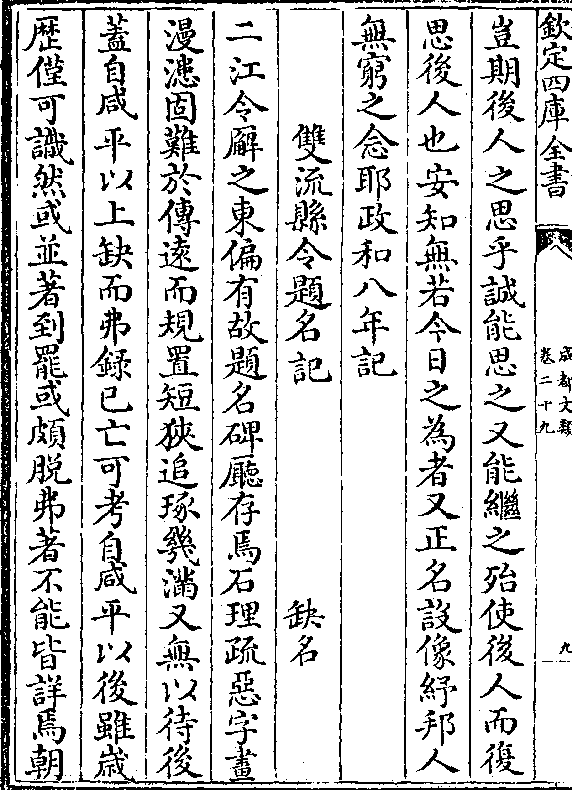 欽定四庫全書
成都文類
卷二十九
九
豈期後人之思乎誠能思之又能繼之殆使後人而復
思後人也安知無若今日之為者又正名設像紓邦人
無窮之念耶政和八年記
雙流縣令題名記 缺名
二江令廨之東偏有故題名碑廳存焉石理疏惡字畫
漫漶固難於傳遠而規置短狹追琢幾滿又無以待後
蓋自咸平以上缺而弗録已亡可考自咸平以後雖嵗
歴僅可識然或並著到罷或頗脱弗著不能皆詳焉朝